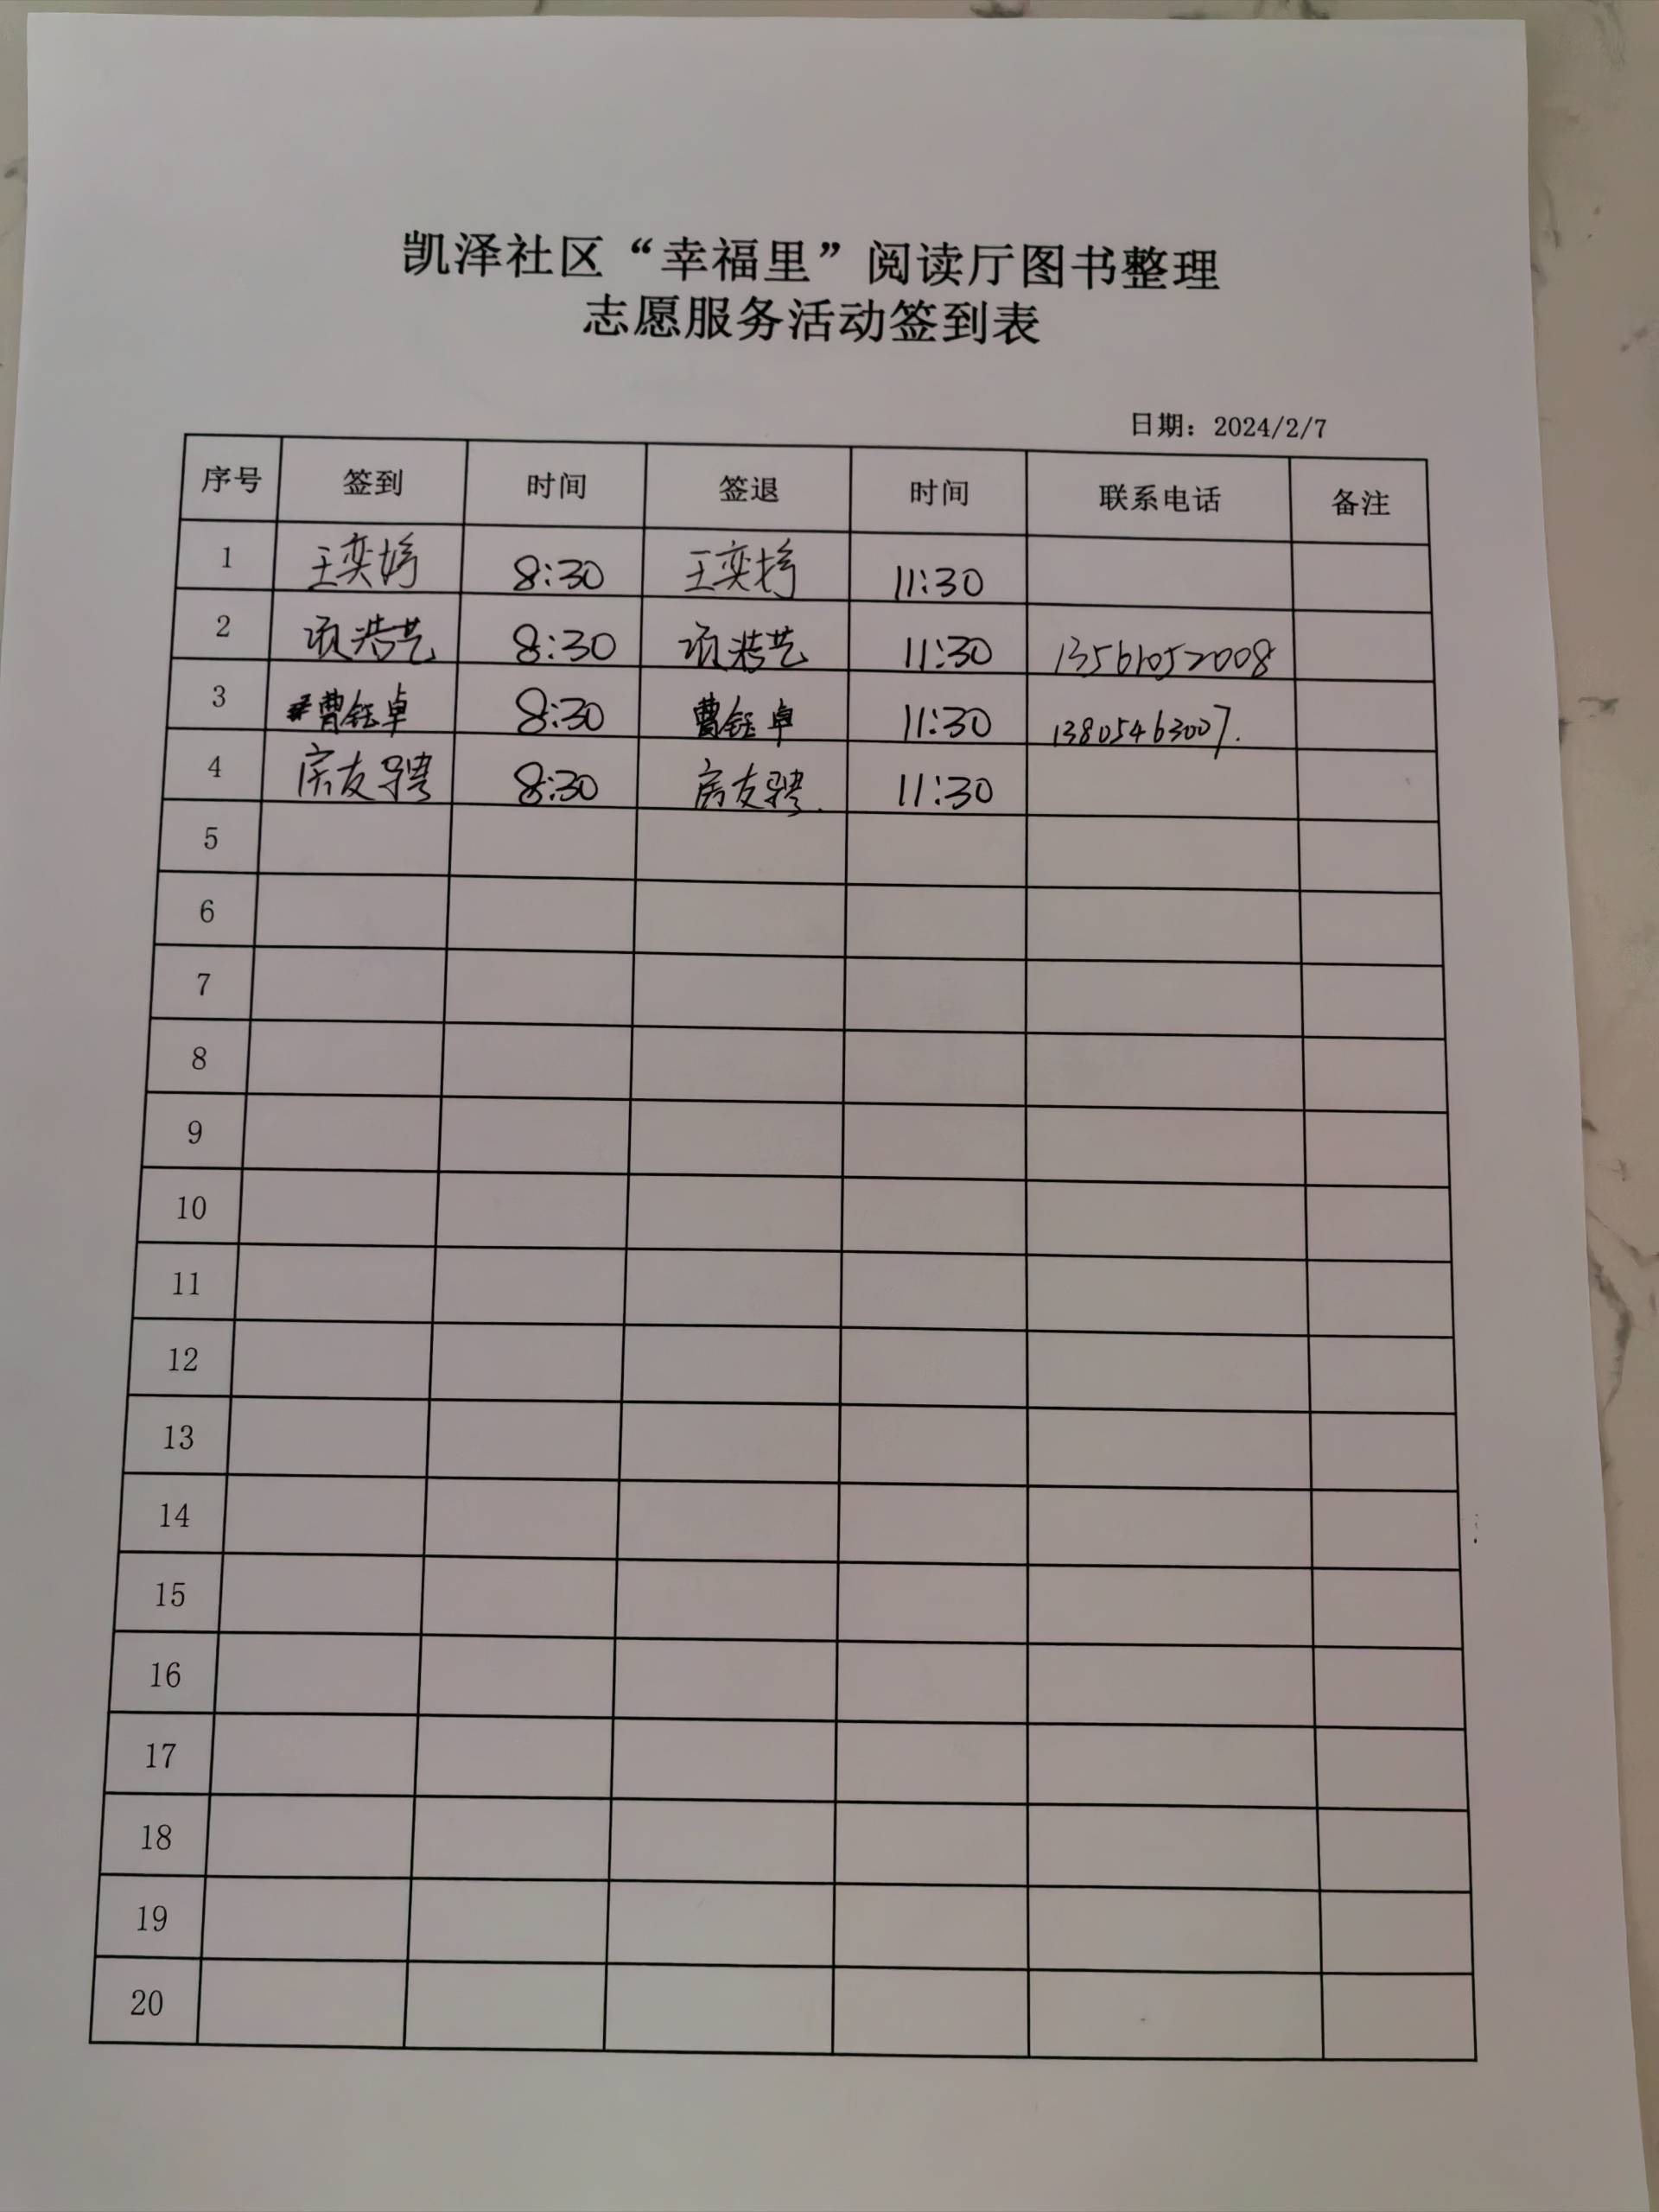 凯泽社区“幸福里”阅读厅图书整理
志愿服务活动签到表
日期：2024/2/7
序号 签到 时间 签退 时间 联系电话 备注
1 王奕婷 8:30 王奕婷 11:30
2 项浩艺 8:30 项浩艺 11:30 13561052008
3 曹钰卓 8:30 曹钰卓 11:30 13805463007.
4 房友骋 8:30 房友骋. 11:30
5
6
7
8
9
10
11
12
13
14
15
16
17
18
19
20